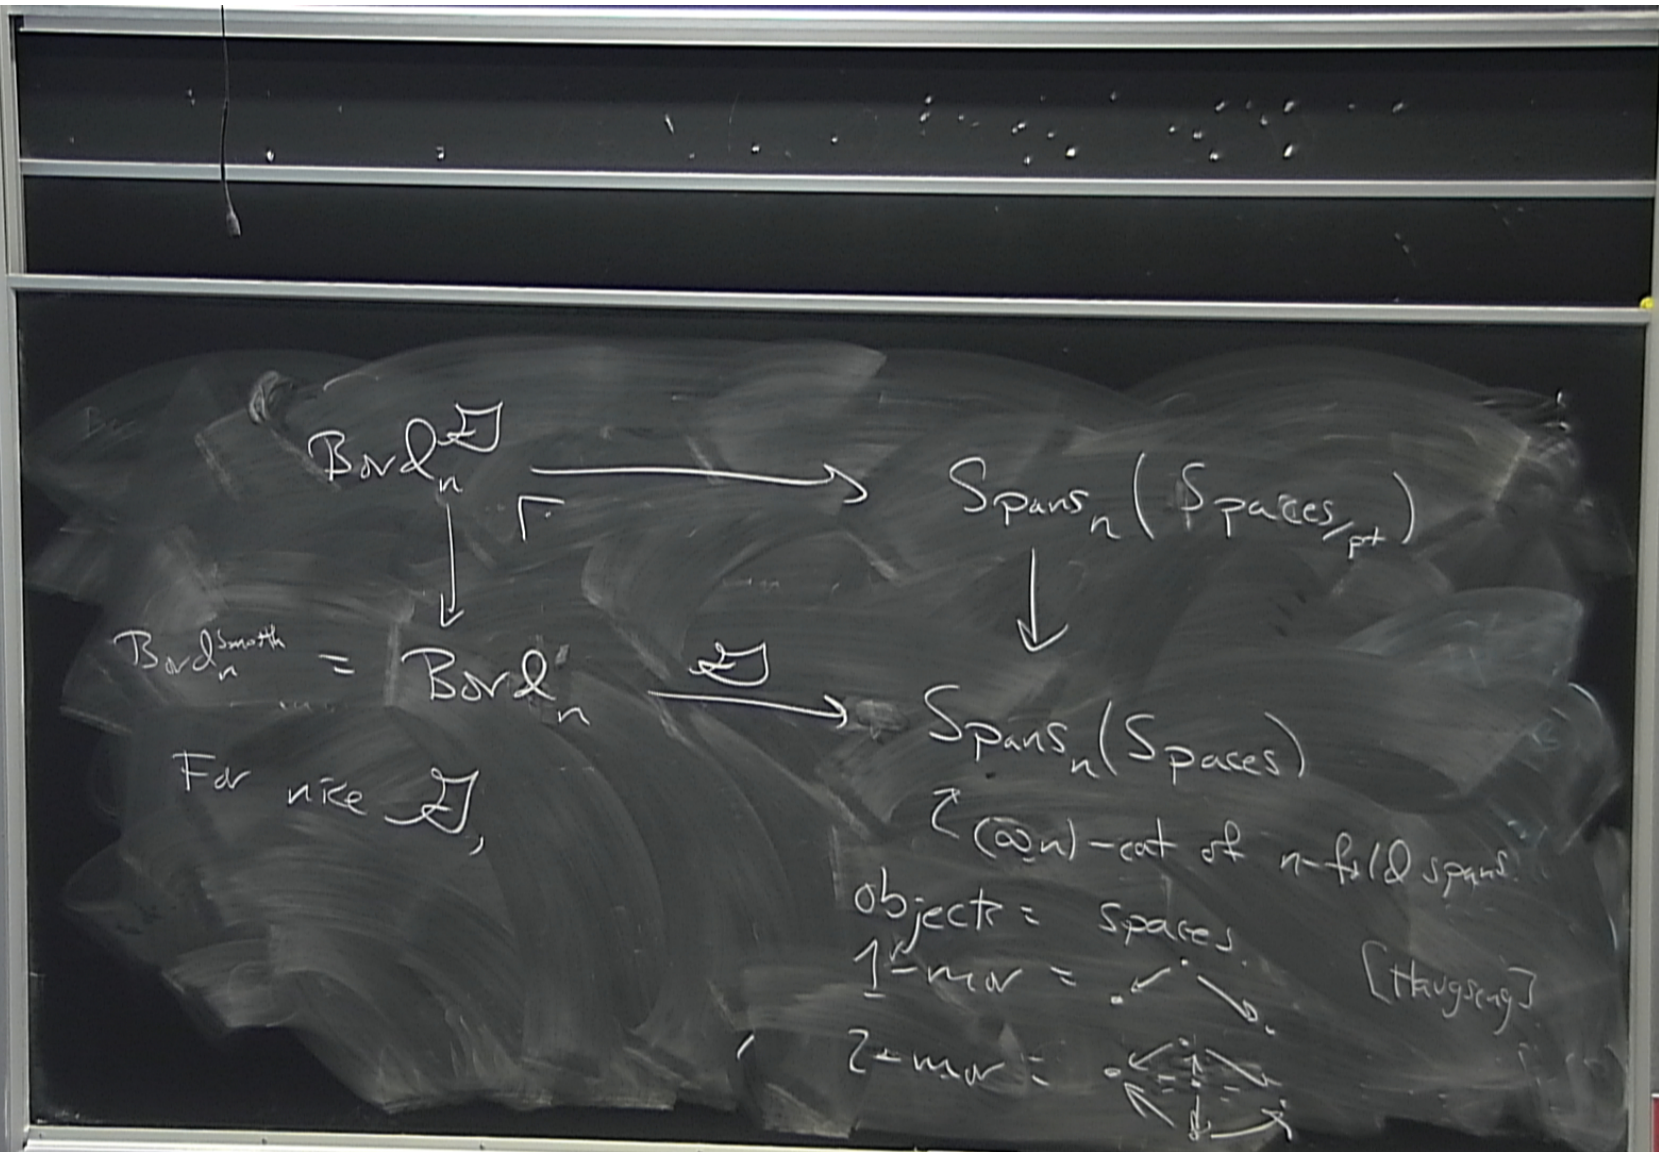 Bord_n^𝒢 ⟶ Spans_n (Spaces_{/pt})
Bord_n^{smooth} = Bord_n ⟶^𝒢 Spans_n (Spaces)
For nice 𝒢,
(∞,n)-cat of n-fold spans.
objects = spaces.
1-mor =
[Haugseng]
2-mor =